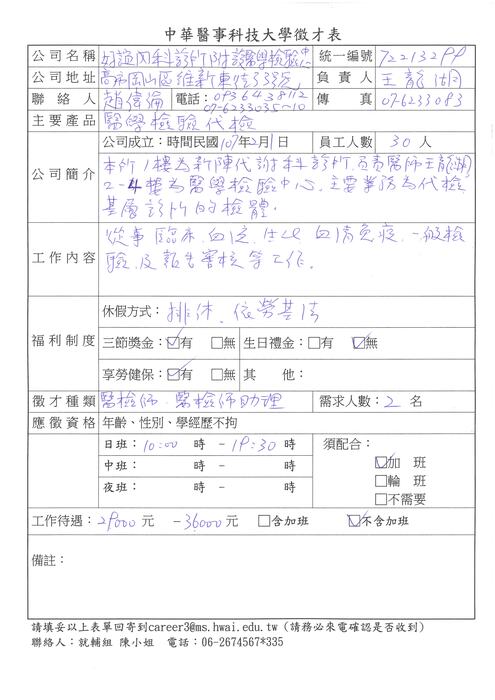 中華醫事科技大學徵才表
公司名稱 內科診所附設醫學檢驗中心 統一編號 72213299
公司地址 高市岡山區維新東街33號 負責人 王龍湖
聯絡人 趙偉淪 電話：0936438112 傳真 07-6233083
07-6233035~10
主要產品 醫學檢驗代檢
公司成立：時間民國107年2月1日 員工人數 30人
公司簡介 本所1樓為新陳代謝科診所，負責醫師王龍湖
2-4樓為醫學檢驗中心，主要業務為代檢
基層診所的檢體。
工作內容 從事臨床血液、生化、血清免疫、一般檢
驗及報告審核等工作。
福利制度 休假方式：排休、依勞基法
三節獎金：☑有 □無 生日禮金：□有 ☑無
享勞健保：☑有 □無 其 他：
徵才種類 醫檢師、醫檢師助理 需求人數：2名
應徵資格 年齡、性別、學經歷不拘
日班：10:00 時 － 19:30 時 須配合：
中班： 時 － 時 ☑加 班
夜班： 時 － 時 □輪 班
□不需要
工作待遇：29000元 -36000元 □含加班 ☑不含加班
備註：
請填妥以上表單回寄到career3@ms.hwai.edu.tw（請務必來電確認是否收到）
聯絡人：就輔組 陳小姐 電話：06-2674567*335